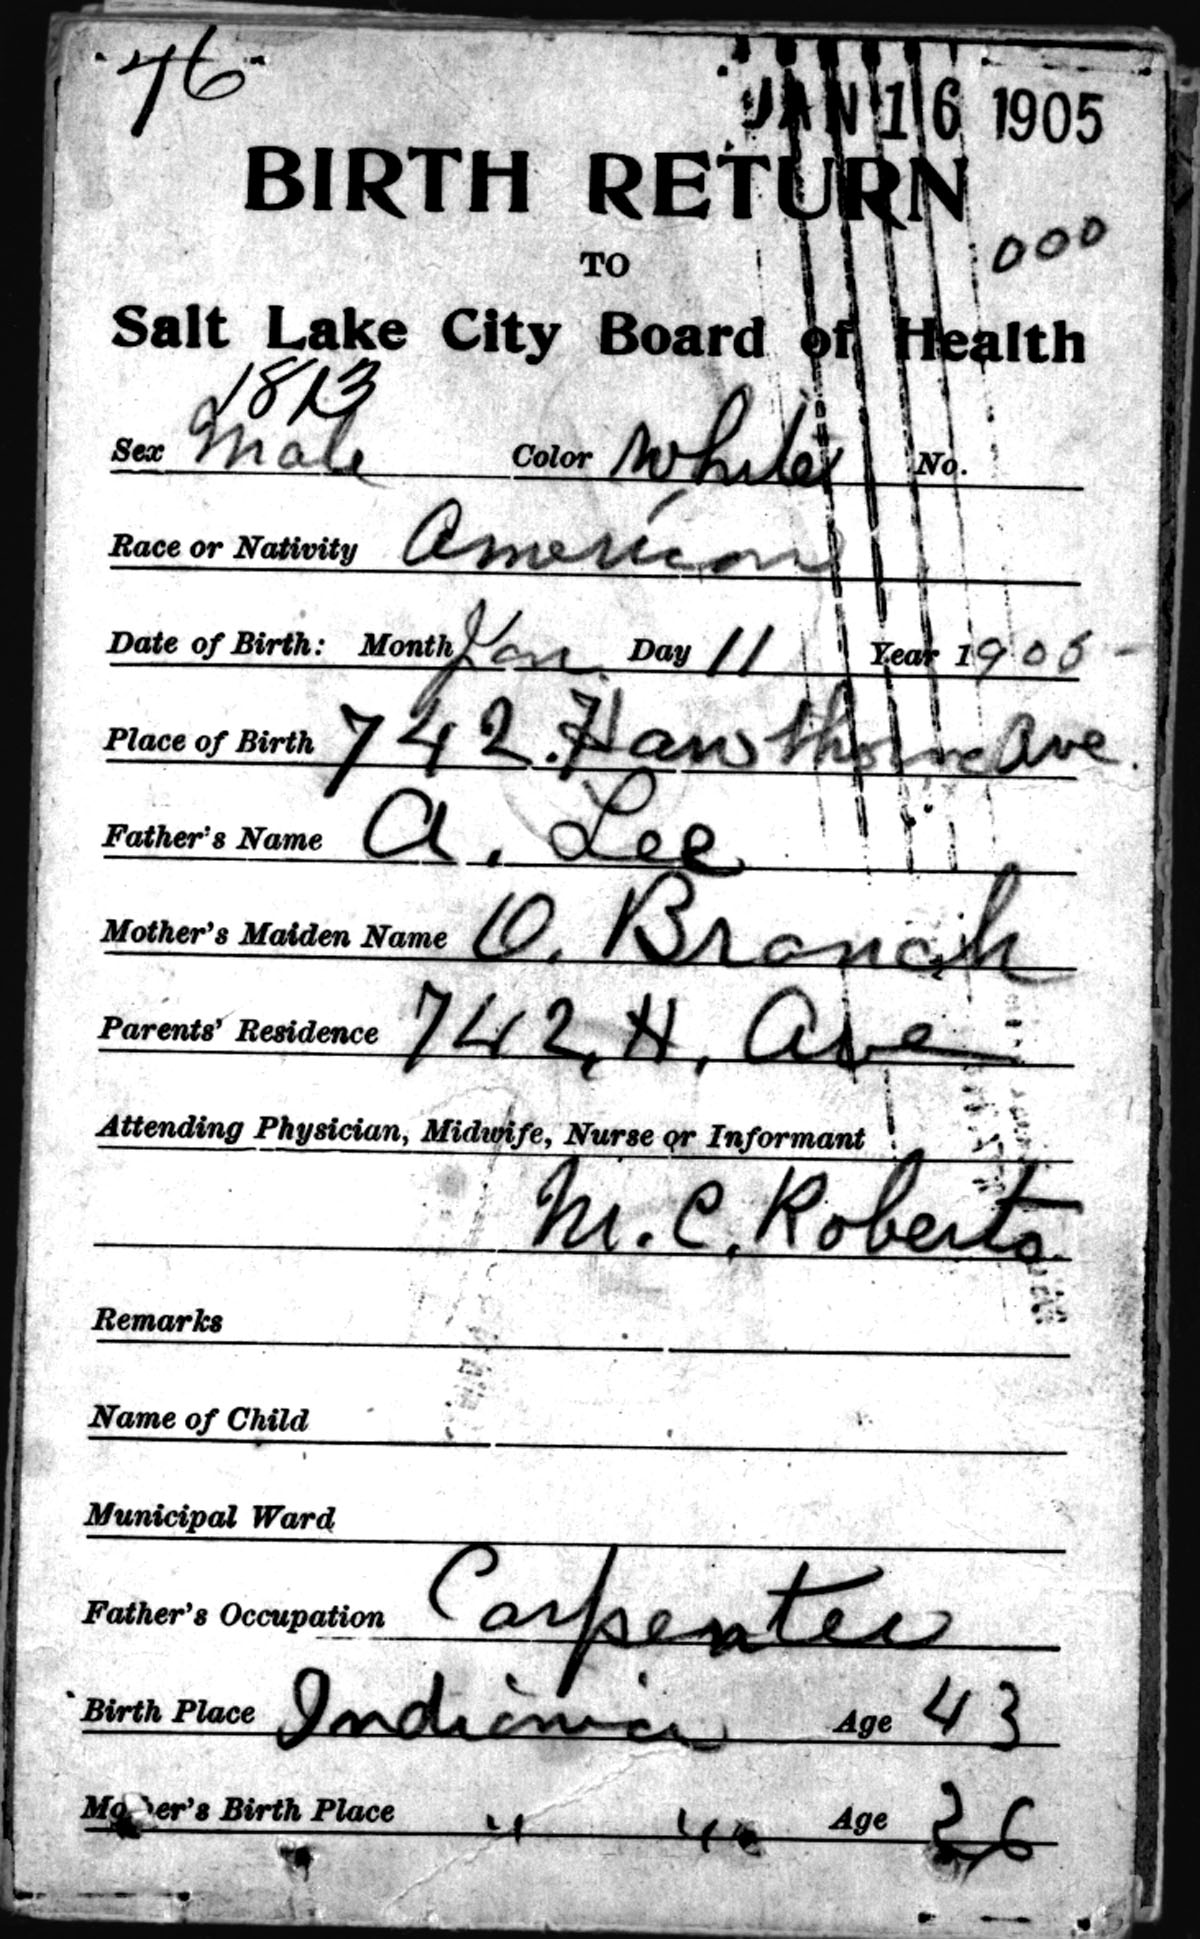 76
JAN 16 1905
BIRTH RETURN
000
TO
Salt Lake City Board of Health
1813
Sex Male Color White No.
Race or Nativity American
Date of Birth: Month Jan Day 11 Year 1905
Place of Birth 742. Hawthorne Ave.
Father's Name A. Lee
Mother's Maiden Name O. Branch
Parents' Residence 742, H. Ave
Attending Physician, Midwife, Nurse or Informant
M. C. Roberts
Remarks
Name of Child
Municipal Ward
Father's Occupation Carpenter
Birth Place Indiania Age 43
Mother's Birth Place " " Age 36